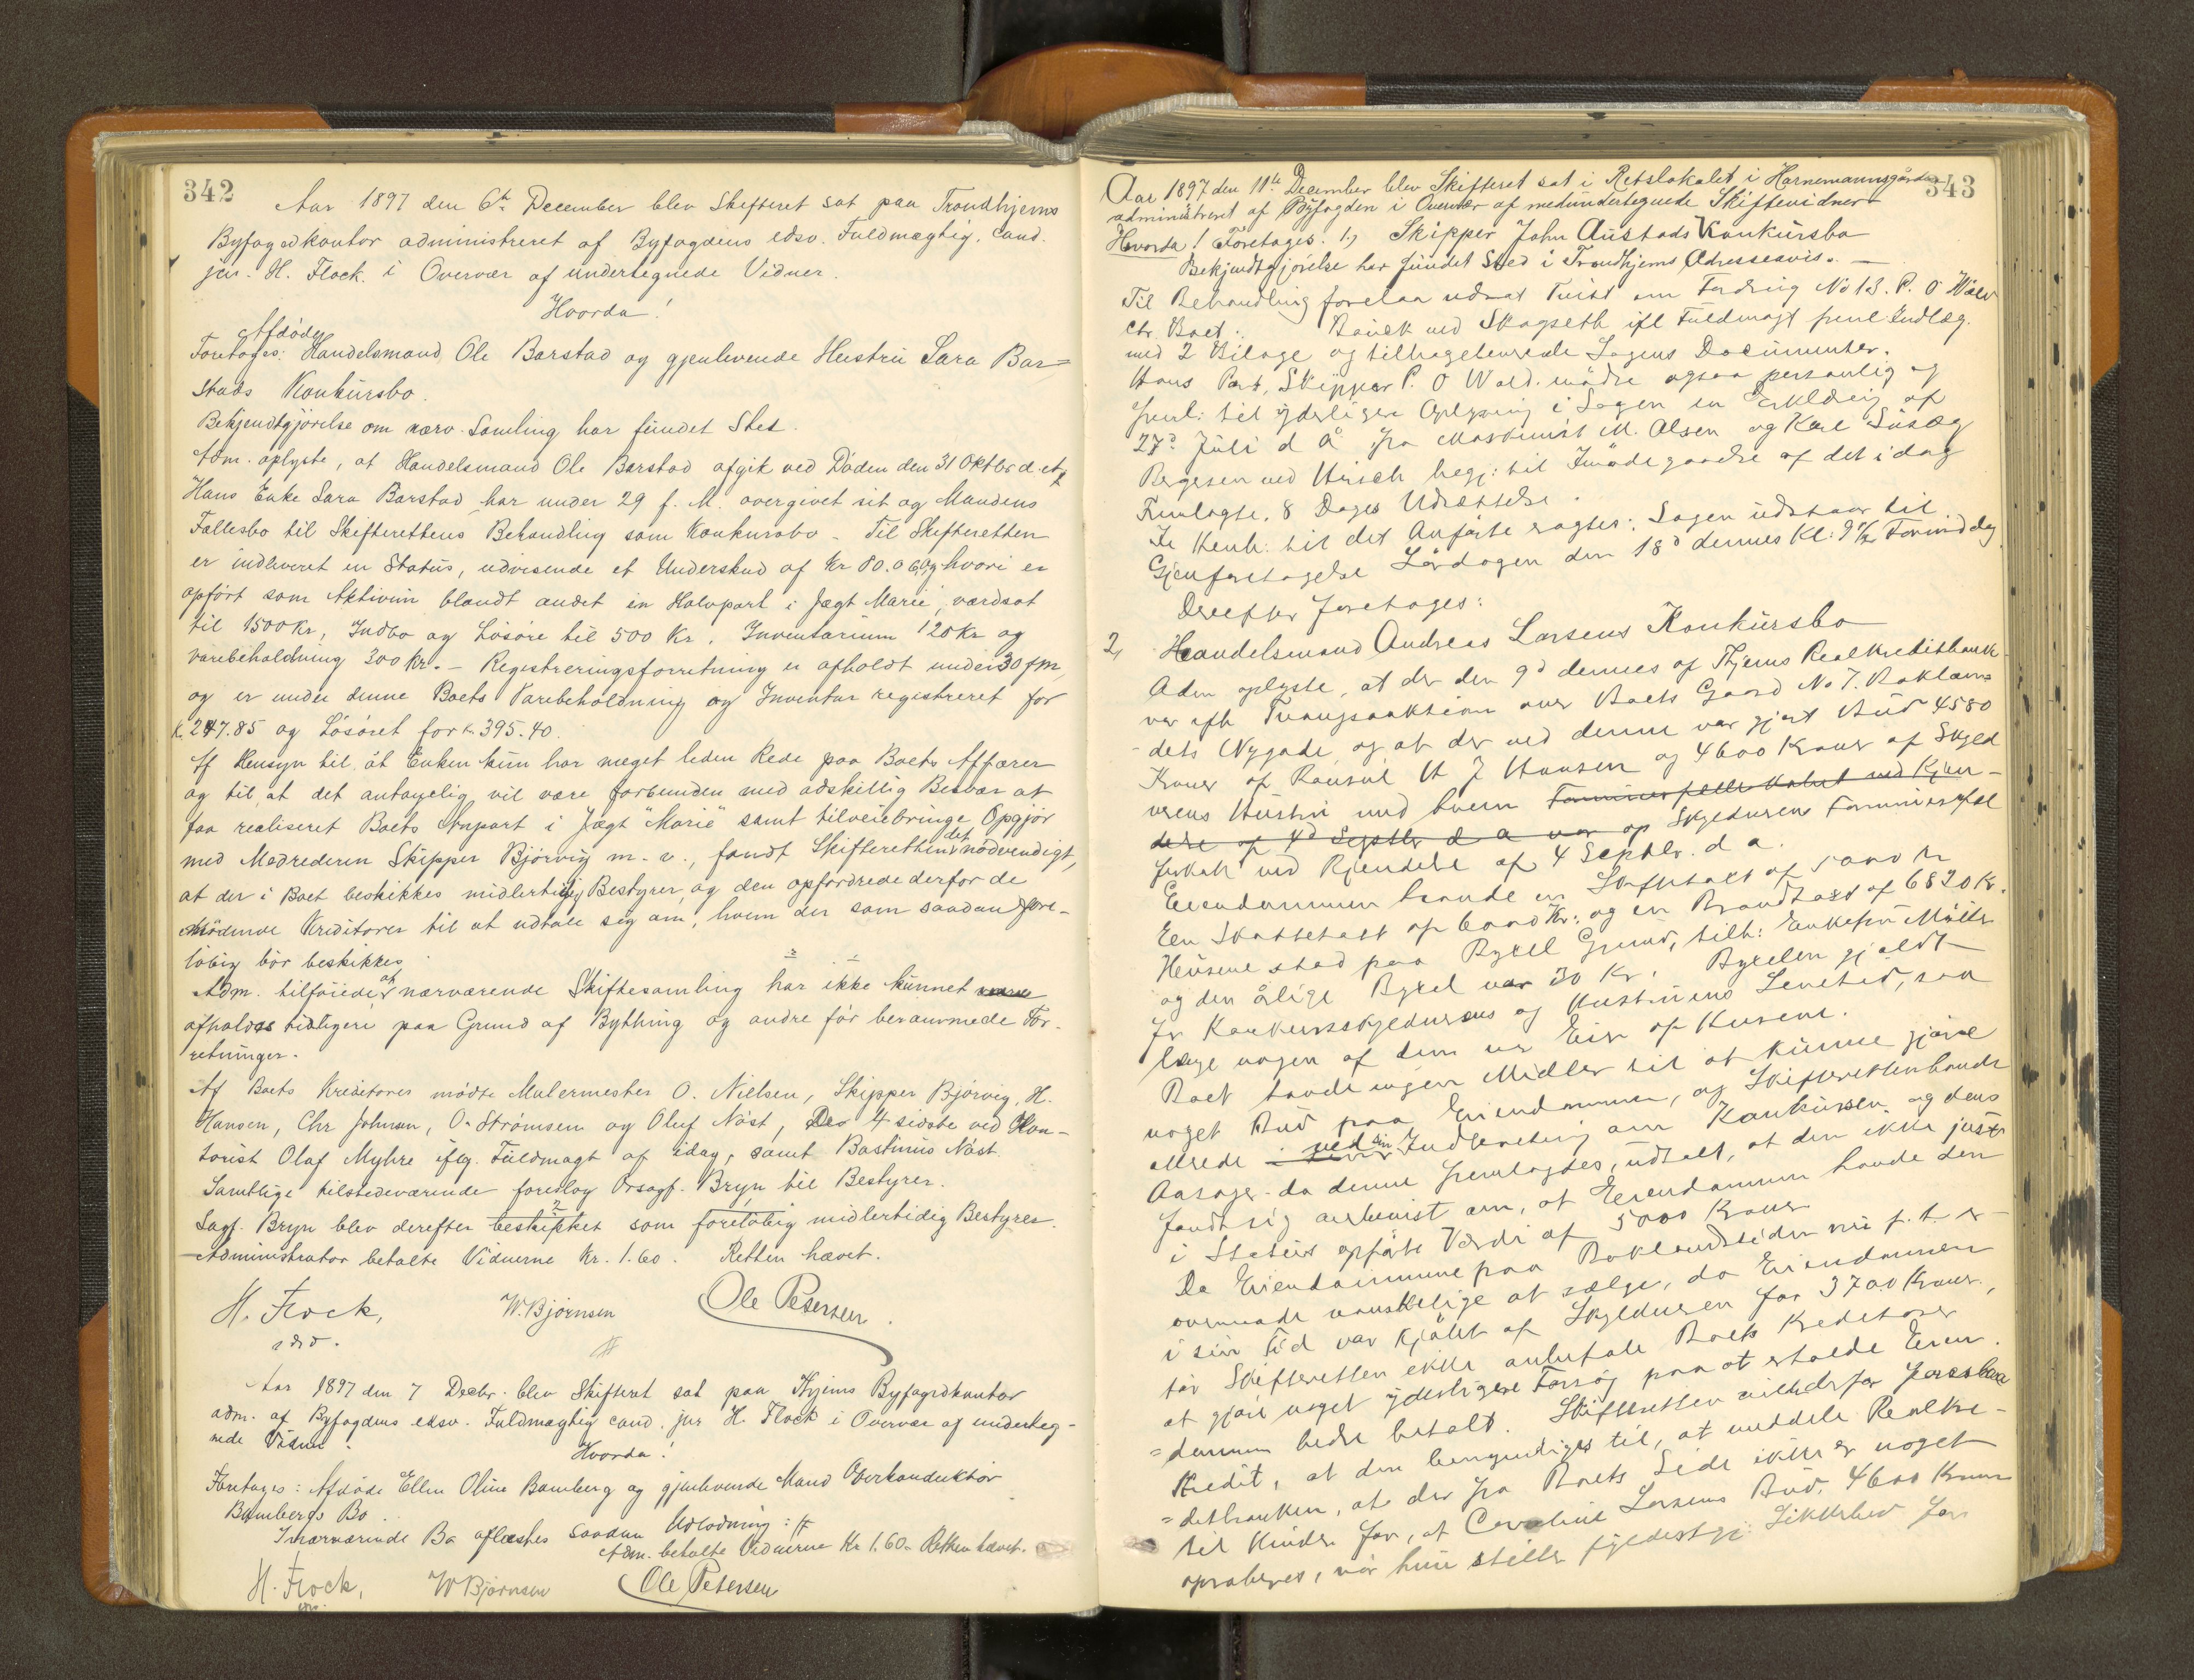 342
Aar 1897 den 6te December blev Skifteret sat paa Trondhjems
Byfogedkontor administreret af Byfogdens edsv. Fuldmægtig, cand.
jur. H. Flock i Overvær af undertegnede Vidner.
Hvorda!
Foretages: Afdøde Handelsmand Ole Barstad og gjenlevende Hustru Sara Bar=
stads Konkursbo.
Bekjendtgjørelse om nærv. Samling har fundet Sted.
Adm. oplyste, at Handelsmand Ole Barstad afgik ved Døden den 31 Oktbr d.
Hans Enke Sara Barstad har under 29 f. M. overgivet sit og Mandens
Fællesbo til Skifterettens Behandling som Konkursbo - Til Skifteretten
er indleveret en Status, udvisende et Underskud af Kr 80.06, og hvori er
opført som Aktivum blandt andet en Halvpart i Jægt Marie, værdsat
til 1500 Kr, Indbo og Løsøre til 500 Kr, Inventarium 120 Kr og
varebeholdning 300 Kr. - Registreringsforretning er afholdt under 30 f m,
og er under denne Boets Varebeholdning og Inventar registreret for
K. 247.85 og Løsøret for K. 395.40.
Af Hensyn til, at Enken kun har meget liden Rede paa Boets Affærer
og til, at det antagelig vil være forbunden med adskillig Besvær at
faa realiseret Boets Anpart i Jægt "Marie" samt tilveiebringe Opgjør
med Medrederen Skipper Bjørvig m. v., fandt Skifteretten det nødvendigt,
at der i Boet beskikkes midlertidig Bestyrer, og den opfordrede derfor de
mødende Kreditorer til at udtale sig om, hvem der som saadan fore-
løbig bør beskikkes.
Adm. tilføiede, at nærværende Skiftesamling har ikke kunnet
afholdes tidligere paa Grund af Bything og andre før berammede For-
retninger.
Af Boets Kreditorer mødte Malermester O. Nielsen, Skipper Bjørvig, H.
Hansen, Chr Johnsen, O. Strømsen og Oluf Näst, De 4 sidste ved Kon-
torist Olaf Myhre iflg. Fuldmagt af idag, samt Bastinius Näst.
Samtlige tilstedeværende foreslog Orsagf. Bryn til Bestyrer.
Sagf. Bryn blev derefter beskikket som foreløbig midlertidig Bestyrer.
Administrator betalte Vidnerne Kr. 1.60. Retten hævet.
H. Flock, W. Bjørnsen Ole Petersen
edsv.
Aar 1897 den 7 Decbr. blev Skifteret sat paa Thjems Byfogedkontor
adm. af Byfogdens edsv. Fuldmægtig cand. jur H. Flock i Overvær af underteg-
nede Vidner.
Hvorda!
Foretages: Afdøde Ellen Oline Bamberg og gjenlevende Mand Overkonduktør
Bambergs Bo.
I nærværende Bo aflæstes saadan Udlodning:
Adm. betalte Vidnerne Kr 1.60. Retten hævet.
H. Flock, W Bjørnsen Ole Petersen
343
Aar 1897 den 11te December blev Skifteret sat i Retslokalet i Harnemannsgården
administreret af Byfogden i Overvær af medundertegnede Skiftevidner
Hvorda! Foretages: 1, Skipper John Austads Konkursbo
Bekjendtgjørelse har fundet Sted i Trondhjems Adresseavis. -
Til Behandling forelaa udsat Tvist om Fordring No 13. P. O Wæld
ctr. Boet: ved Skogseth ifl Fuldmagt freml Indlæg.
med 2 Bilage og tilbageleverede Sagens Documenter.
Hans Part, Skipper P. O Wæld. mødte ogsaa personlig og
freml. til yderligere Oplysning i Sagen en Erklæring af
27d Juli d A fra Maskinist M. Olsen og Karl
ved Hirsch begj: til Imødegaaelse af det idag
Fremlagte, 8 Dages Udsættelse.
I Henh. til det Anførte sagtes: Sagen udstaar til
Gjenforetagelse Lørdagen den 18d dennes Kl: 9 1/2 Formiddag
Derefter foretages:
2, Handelsmand Andreas Larsens Konkursbo
Adm oplyste, at der den 9d dennes af Thjems Realkreditbank
var afh Tvangsauktion over Boets Gaard No 7. Baklan-
dets Nygade, og at der ved denne var gjort Bud 4580
Kroner af Konsul H J Hansen og 4600 Kroner af Skyld
nerens Hustru med hvem Formuesfælleskabet ved Kjen-
delse af 4d Septbr d a var op Skyldnerens Formuesfæl
leskab ved Kjendelse af 4 Septbr. d a.
Eiendommen havde en Skiftetaxt af 5000 Kr
En Skattetaxt af 6000 Kr. og en Brandtaxt af 6820 Kr.
Husene stod paa Byxel Grund, tilh: Enkefru Möller
og den årlige Byxel var 30 Kr. Byxelen gjaldt
for Konkursskyldnerens og Hustruens Levetid, saa
længe nogen af dem var Eier af Husene.
Boet havde ingen Midler til at kunne gjøre
noget Bud paa Eiendommen, og Skifteretten havde
allerede ved sin Indberetning om Konkursen og dens
Aarsager - da denne fremlagdes, udtalt, at den ikke just
fandt sig overbevist om, at Eiendommen havde den
i Status opførte Værdi af 5000 Kroner
Da Eiendommene paa Baklandssiden nu p. t. er
overmaade vanskelige at sælge, da Eiendommen
i sin Tid var kjøbt af Skyldneren for 3700 Kroner,
tør Skifteretten ikke anbefale Boets Kreditorer
at gjøre noget yderligere Forsøg paa at erholde Eien
=dommen bedre betalt. Skifteretten vilde derfor foreslaa
Kredit, at den bemyndiges til, at meddele Realkre-
=ditbanken, at der fra Boets Side ikke er noget
til Hinder for, at Caroline Larsens Bud, 4600 Kroner
approberes, når hun stiller fyldestgj. Sikkerhed for